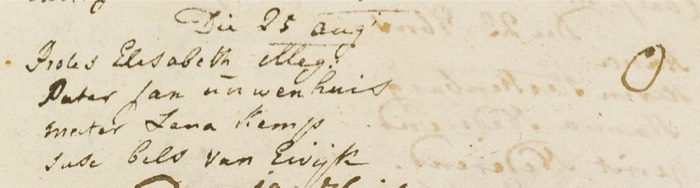 Die 25 aug
Proles Elisabeth illeg:
Pater Jan
meter Lena Kemp
susc bels van Ewijk